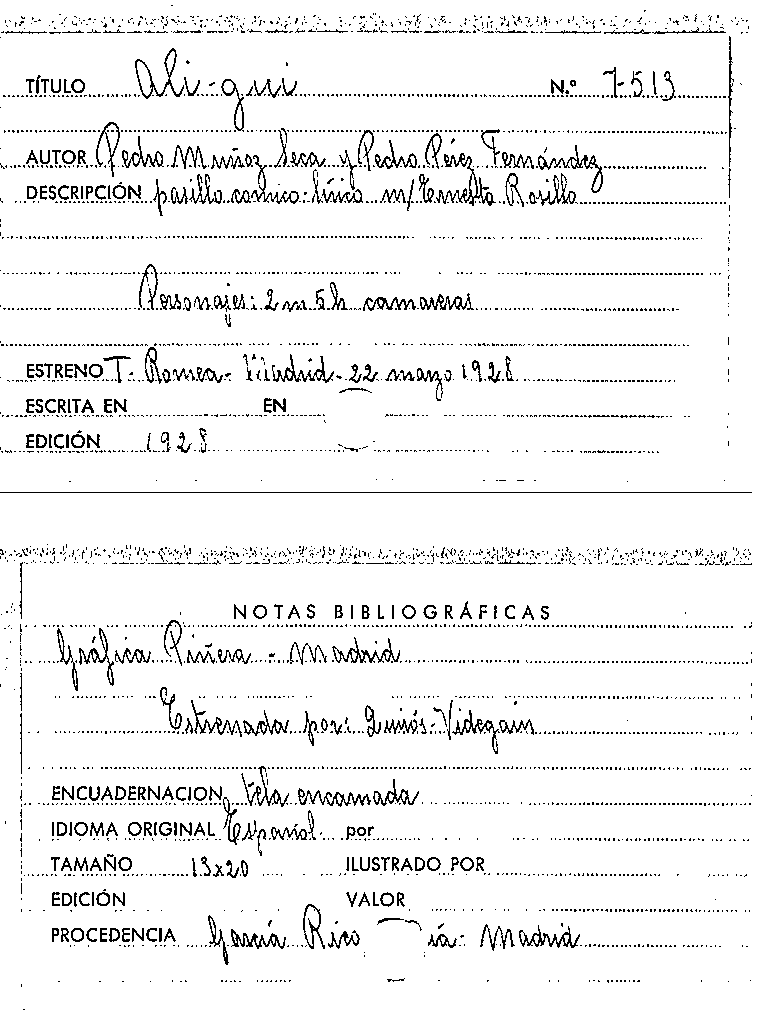 TÍTULO Ali-gui N.º 7-513
AUTOR Pedro Muñoz Seca y Pedro Pérez Fernández
DESCRIPCIÓN pasillo cómico-lírico m/ Ernesto Rosillo
Personajes: 2 m 5 h camareras
ESTRENO T. Romea - Madrid - 22 marzo 1928
ESCRITA EN EN
EDICIÓN 1928
NOTAS BIBLIOGRÁFICAS
Gráfica Piñera - Madrid
Estrenada por: Quirós-Videgain
ENCUADERNACION tela encarnada
IDIOMA ORIGINAL Español por
TAMAÑO 13x20 ILUSTRADO POR
EDICIÓN VALOR
PROCEDENCIA García Rico ía - Madrid